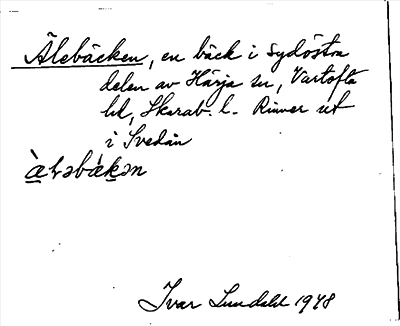 Älebäcken, en bäck i sydöstra
delen av Härja sn, Vartofta
hd, Skarab. l. Rinner ut
i Svedån
Ivar Lundahl 1948